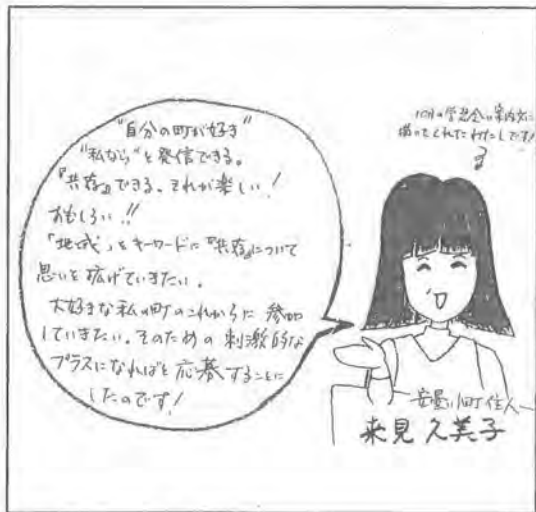 "自分の町が好き"
"私なら"と発信できる。
『共存』できる。それが楽しい！
おもしろい!!
「地域」をキーワードに『共存』について
思いを拡げていきたい。
大好きな私の町のこれからに参加
していきたい。そのための刺激的な
プラスになればと応募することに
したのです！
10月の学習会の案内文に
描いてくれたわたしです！
安曇川町住人
来見久美子